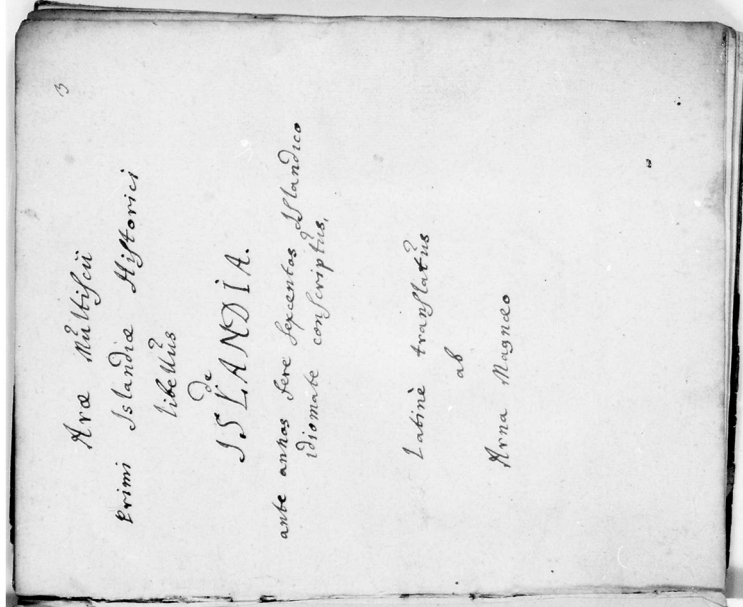 3
Aræ Multiscii
Primi Islandiæ Historici
libellus
de
ISLANDIA.
ante annos fere sexcentos Islandico
idiomate conscriptus,
Latinè translatus
ab
Arna Magnæo